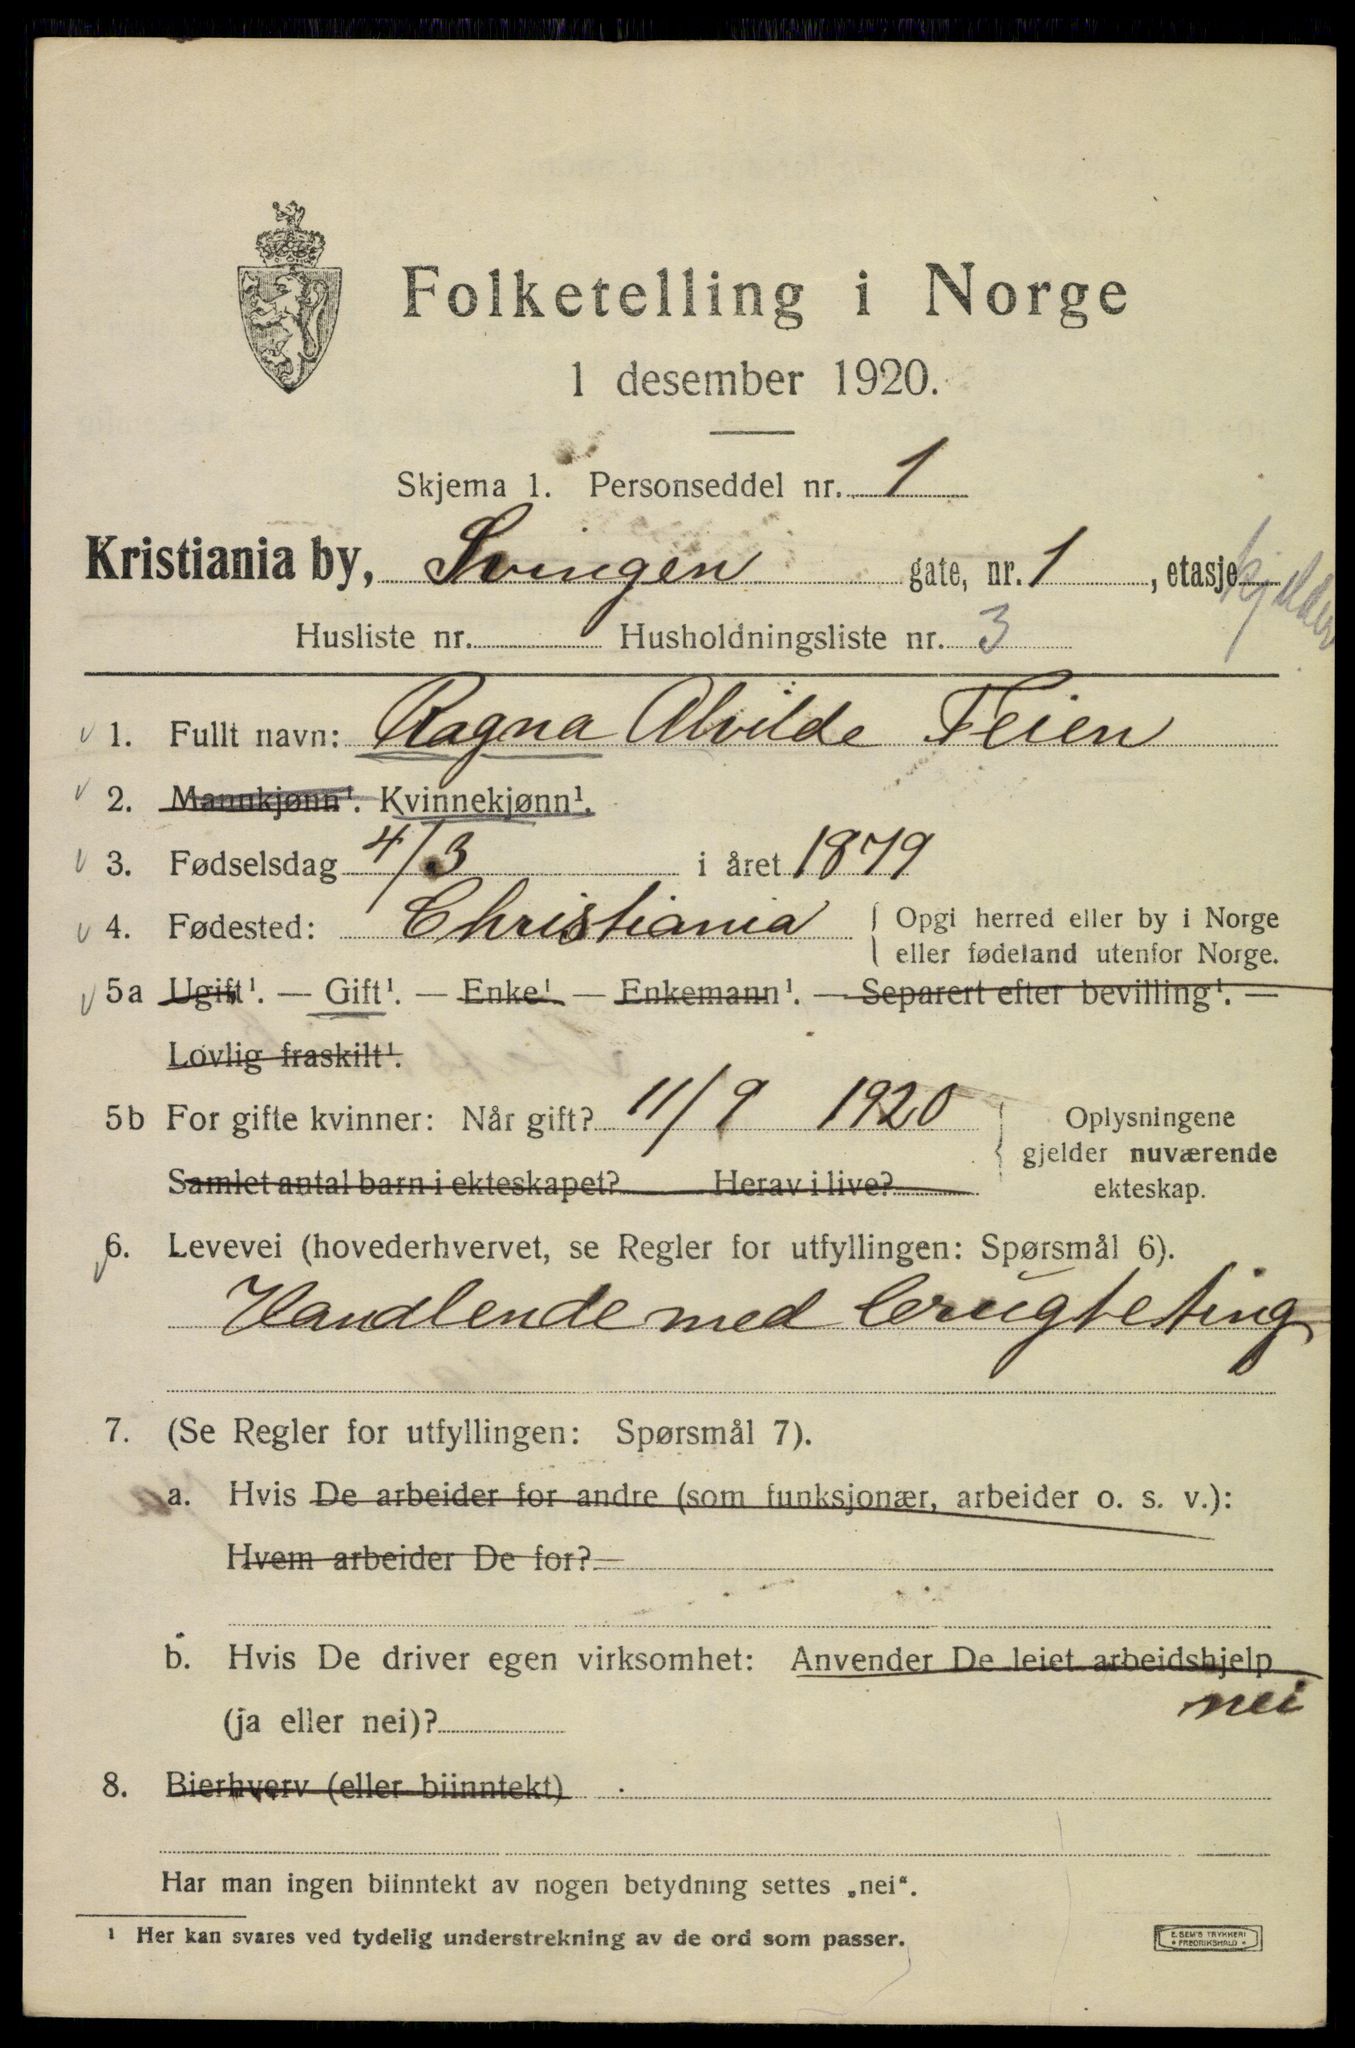 Folketelling i Norge
1 desember 1920.
Skjema 1. Personseddel nr. 1
Kristiania by, Svingen gate, nr. 1, etasje kjelder
Husliste nr. Husholdningsliste nr. 3
1. Fullt navn: Ragna Alvilde Feien
2. Mannkjønn¹. Kvinnekjønn¹.
3. Fødselsdag 4/3 i året 1879
4. Fødested: Christiania { Opgi herred eller by i Norge
eller fødeland utenfor Norge.
5a Ugift¹. — Gift¹. — Enke¹ — Enkemann¹. — Separert efter bevilling¹. —
Lovlig fraskilt¹.
5b For gifte kvinner: Når gift? 11/9 1920 { Oplysningene
gjelder nuværende
Samlet antal barn i ekteskapet? Herav i live?
ekteskap.
6. Levevei (hovederhvervet, se Regler for utfyllingen: Spørsmål 6).
Handlende med brugte ting
7. (Se Regler for utfyllingen: Spørsmål 7).
a. Hvis De arbeider for andre (som funksjonær, arbeider o. s. v.):
Hvem arbeider De for?
b. Hvis De driver egen virksomhet: Anvender De leiet arbeidshjelp
(ja eller nei)? nei
8. Bierhverv (eller biinntekt)
Har man ingen biinntekt av nogen betydning settes „nei“.
¹ Her kan svares ved tydelig understrekning av de ord som passer.
E. SEM'S TRYKKERI
FREDRIKSHALD